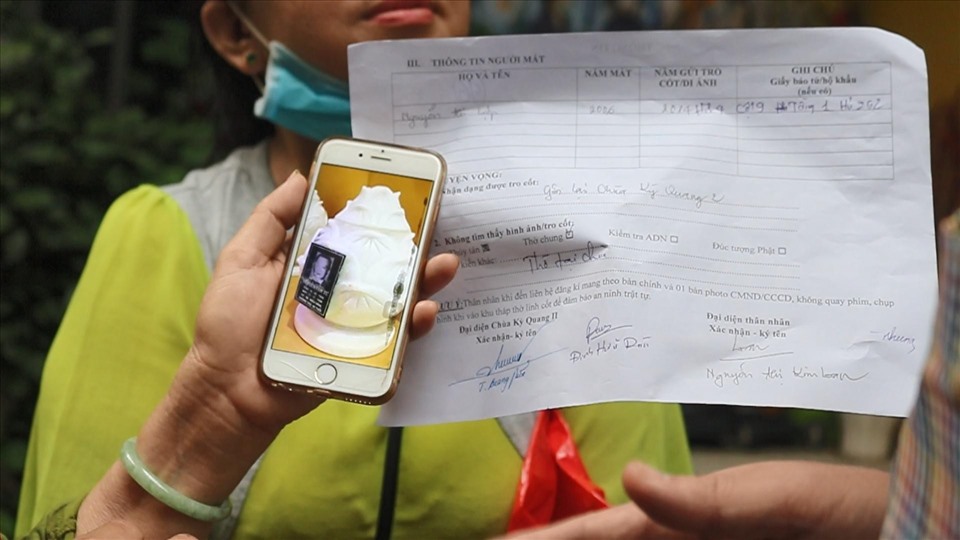 III. THÔNG TIN NGƯỜI MẤT
HỌ VÀ TÊN
NĂM MẤT
NĂM GỬI TRO CỐT/DI ẢNH
GHI CHÚ
Giấy báo tử/hộ khẩu
(nếu có)
Nguyễn
YỆN VỌNG:
Nhận dạng được tro cốt: Gởi lại Chùa Kỳ Quang 2
2. Không tìm thấy hình ảnh/tro cốt:
Thủy tán Thờ chung Kiểm tra ADN Đúc tượng Phật
kiến khác: Thờ tại chùa
LƯU Ý: Thân nhân khi đến liên hệ đăng kí mang theo bản chính và 01 bản photo CMND/CCCD, không quay phim, chụp
hình khi vào khu tháp thờ linh cốt để đảm bảo an ninh trật tự.
Đại diện Chùa Kỳ Quang II
Xác nhận- ký tên
Đại diện thân nhân
Xác nhận - ký tên
Nguyễn thị Kim Loan